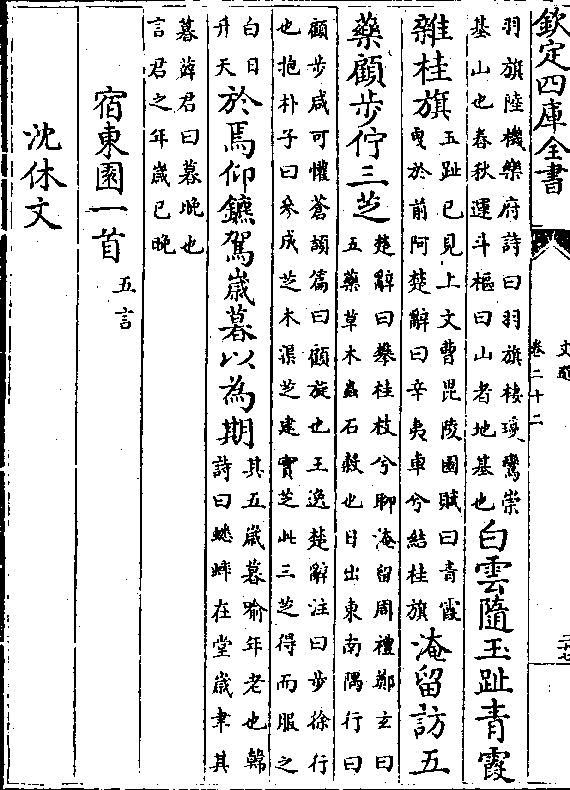 欽定四庫全書
文選
卷二十二
二十七
羽旗陸機樂府詩曰羽旗棲瓊鸞崇
基山也春秋運斗樞曰山者地基也白雲隨玉趾青霞
雜桂旗五趾已見上文曹毘陵園賦曰青霞
曳於前阿楚辭曰辛夷車兮結桂旗淹留訪五
藥顧步佇三芝楚辭曰攀桂枝兮聊淹留周禮鄭玄曰
五藥草木蟲石穀也日出東南隅行曰
顧步咸可懽蒼頡篇曰顧旋也王逸楚辭注曰步徐行
也抱朴子曰參成芝木渠芝建實芝此三芝得而服之
白日
升天於焉仰鑣駕嵗暮以為期其五嵗暮喻年老也韓
詩曰蟋蟀在堂嵗聿其
暮薛君曰暮晚也
言君之年嵗已晚
宿東園一首五言
沈休文